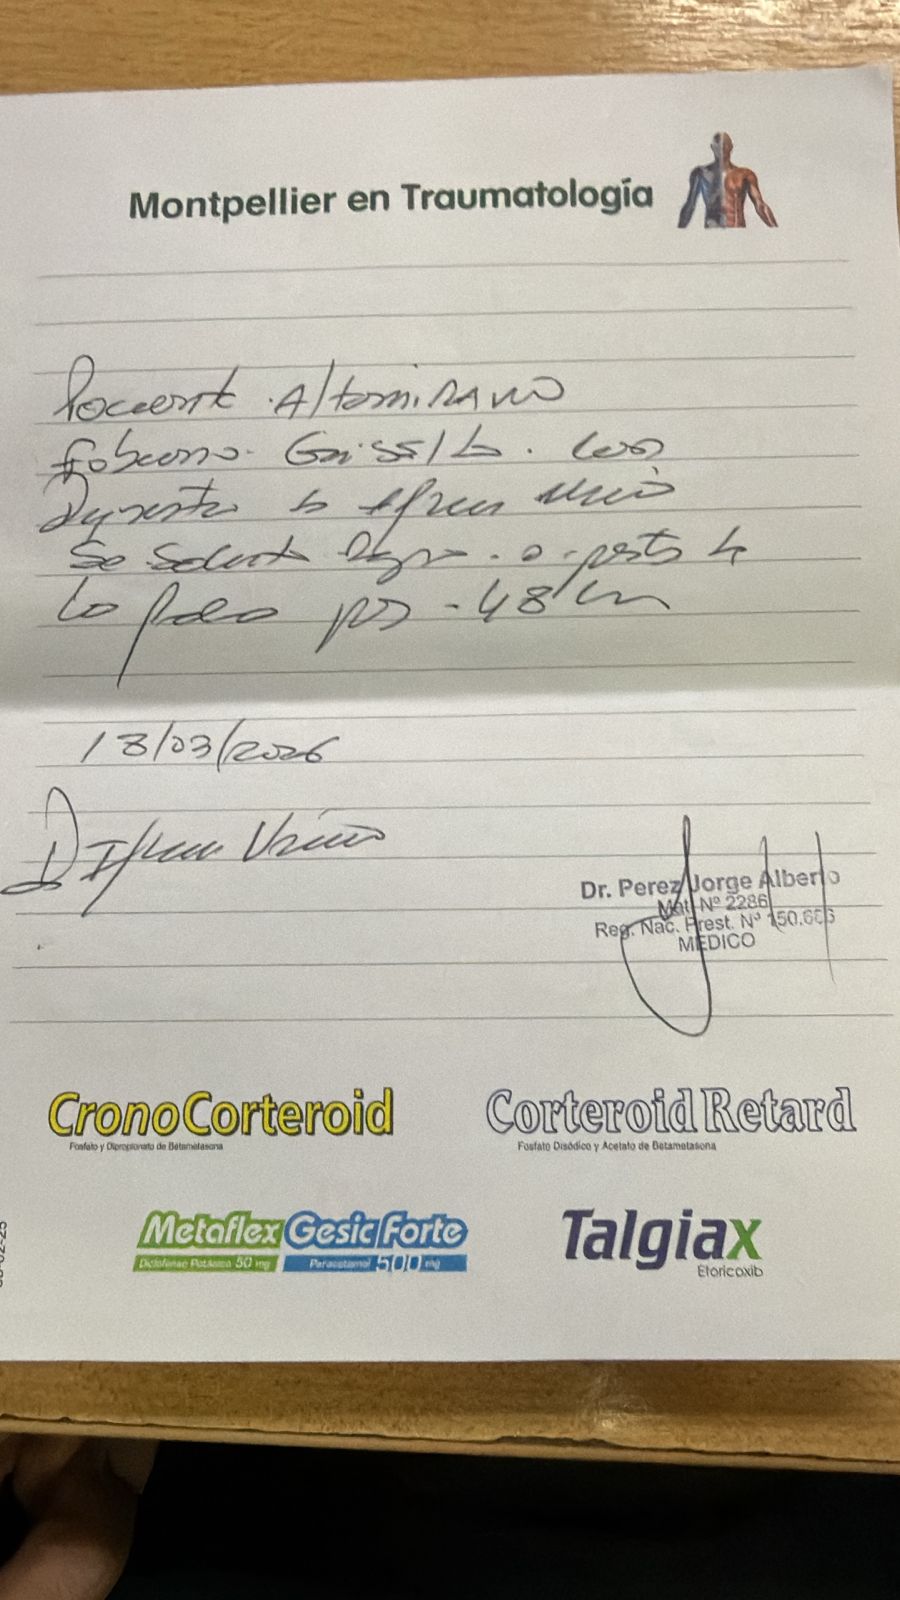 Montpellier en Traumatología
Paciente Altamirano
Fabiana Gissella. con
se solicita reposo a partir de
la fecha por 48 hs
18/03/2026
D
Dr. Perez Jorge Alberto
Mat. Nº 2286
Reg. Nac. Prest. Nº 150.663
MEDICO
CronoCorteroid
Fosfato y Dipropionato de Betametasona
Corteroid Retard
Fosfato Disódico y Acetato de Betametasona
Metaflex Gesic Forte
Diclofenac Potásico 50 mg Paracetamol 500 mg
Talgiax
Etoricoxib